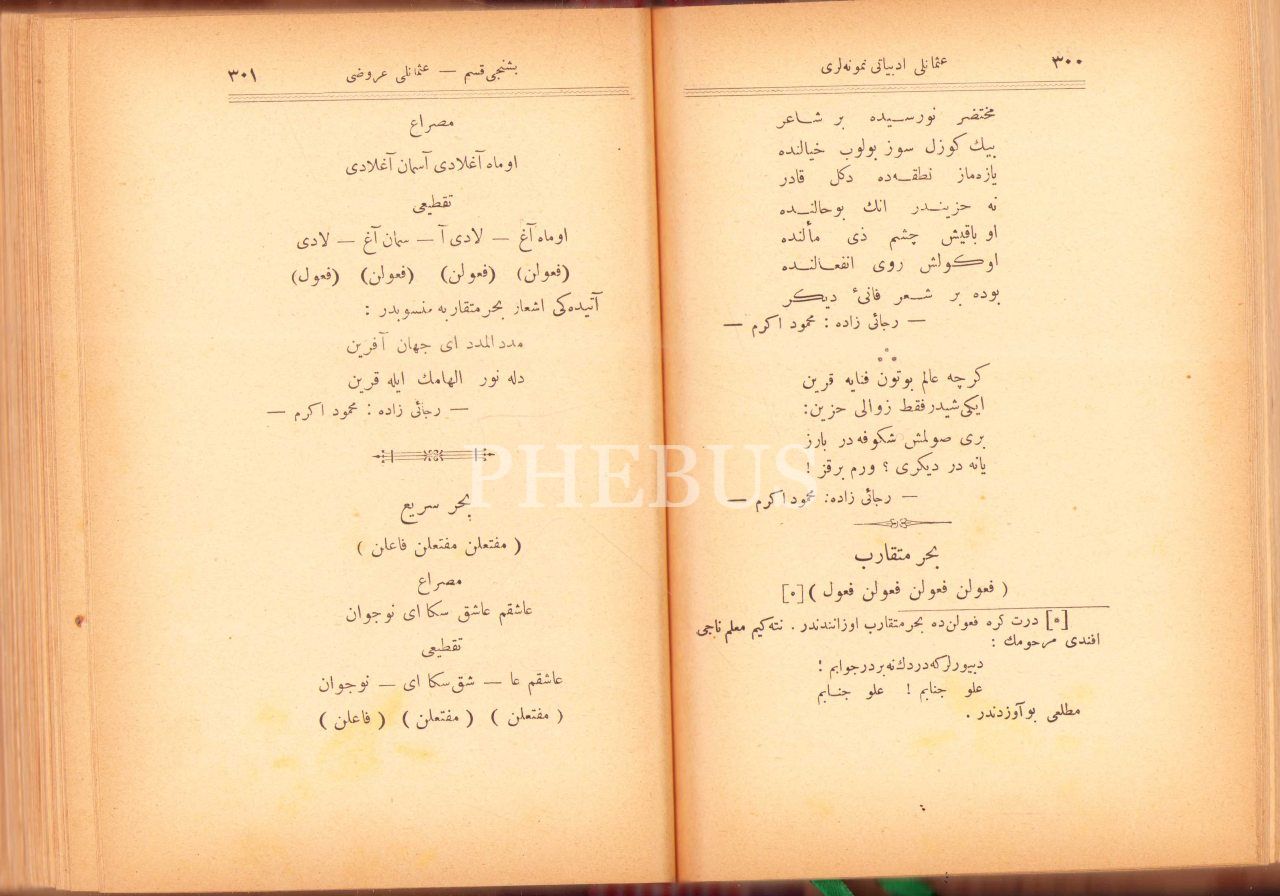 ٣٠٠ عثمانلى ادبياتى نمونه‌لرى
مختضر نورسيده بر شاعر
بيك كوزل سوز بولوب خيالنده
يازه‌ماز نطقه‌ده دكل قادر
نه حزيندر انك بوحالنده
او باقيش چشم ذى مألنده
اوكولش روى انفعالنده
بوده بر شعر فانئ ديكر
— رجائى زاده : محمود اكرم —
كرچه عالم بوتون فنايه قرين
ايكى شيدر فقط زوالى حزين:
برى صولمش شكوفه‌در بارز
يانه در ديكرى ؟ ورم بر قز !
— رجائى زاده: محمود اكرم —
بحر متقارب
( فعولن فعولن فعولن فعول ) [٥]
[٥] درت كره فعولن‌ده بحر متقارب اوزانندندر . نته‌كيم معلم ناجى
افندى مرحومك :
ديبورلركه دردك نه بر درجوابم !
علو جنابم ! علو جنابم
مطلعى بو آوزدندر .
بشنجى قسم — عثمانلى عروضى ٣٠١
مصراع
او ماه آغلادى آسمان آغلادى
تقطيعى
او ماه آغ — لادى آ — سمان آغ — لادى
(فعولن) (فعولن) (فعولن) (فعول)
آتيده‌كى اشعار بحر متقاربه منسوبدر :
مدد المدد اى جهان آفرين
دله نور الهامك ايله قرين
— رجائى زاده : محمود اكرم —
بحر سريع
( مفتعلن مفتعلن فاعلن )
مصراع
عاشقم عاشق سكا اى نوجوان
تقطيعى
عاشقم عا — شق سكا اى — نوجوان
( مفتعلن ) ( مفتعلن ) ( فاعلن )
PHEBUS